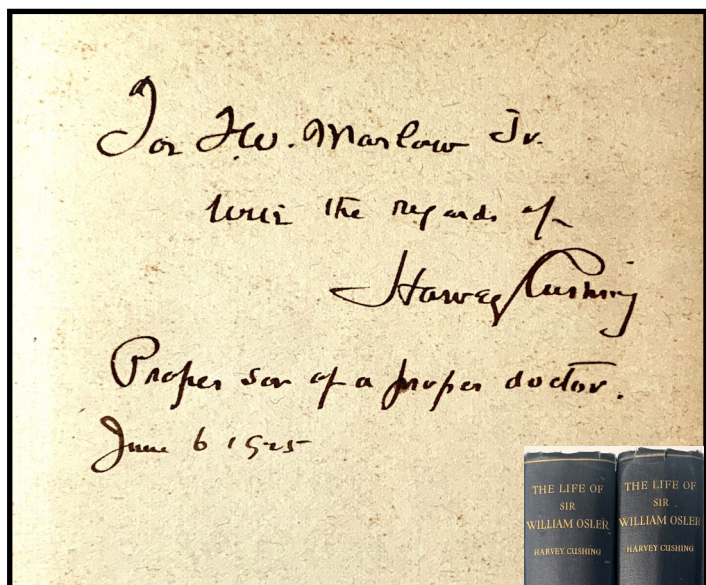 For F.W. Marlow Jr.
with the regards of
Harvey Cushing
Proper son of a proper doctor.
June 6 1925
THE LIFE OF
SIR
WILLIAM OSLER
HARVEY CUSHING
THE LIFE OF
SIR
WILLIAM OSLER
HARVEY CUSHING